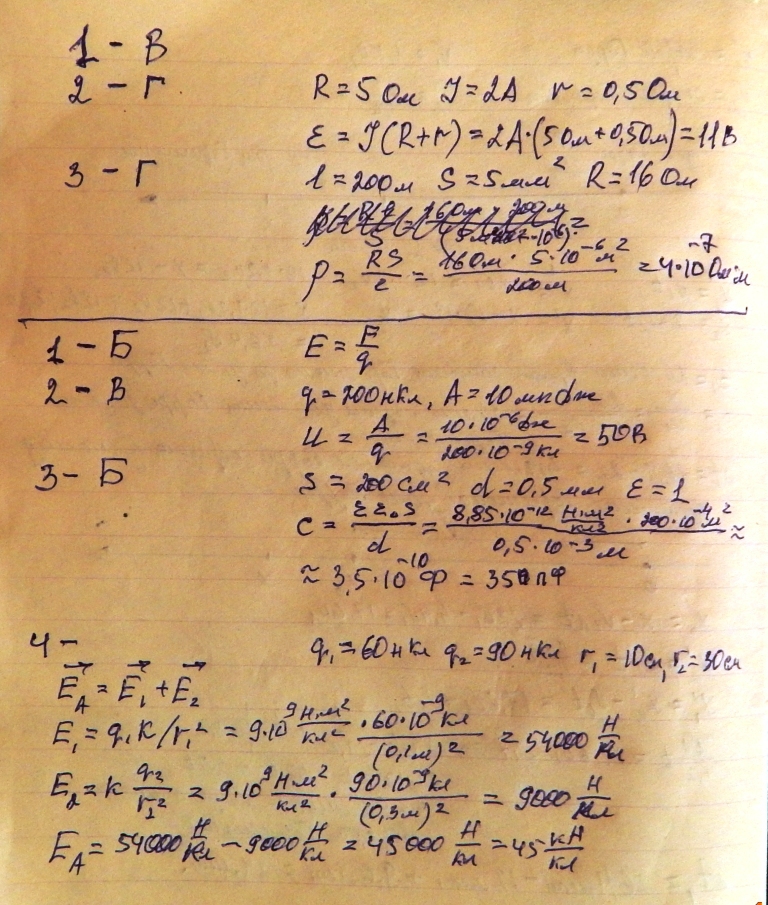 1 - В
2 - Г R = 5 Ом J = 2А r = 0,5 Ом
ε = J(R+r) = 2А·(5Ом+0,5Ом) = 11В
3 - Г l = 200м S = 5мм² R = 16 Ом
ρ = RS/l = 16Ом · 5·10⁻⁶м²/200м = 4·10⁻⁷ Ом·м
1 - Б E = F/q
2 - В q = 200нКл, A = 10мкДж
U = A/q = 10·10⁻⁶Дж/200·10⁻⁹Кл = 50В
3 - Б S = 200см² d = 0,5мм ε = 1
C = εε₀S/d = 8,85·10⁻¹² Н·м²/Кл² · 200·10⁻⁴м²/0,5·10⁻³м ≈
≈ 3,5·10⁻¹⁰Ф = 350пФ
4 - q₁ = 60нКл q₂ = 90нКл r₁ = 10см, r₂ = 30см
E⃗_A = E⃗₁ + E⃗₂
E₁ = q₁k/r₁² = 9·10⁹ Н·м²/Кл² · 60·10⁻⁹Кл/(0,1м)² = 54000 Н/Кл
E₂ = k q₂/r₂² = 9·10⁹ Н·м²/Кл² · 90·10⁻⁹Кл/(0,3м)² = 9000 Н/Кл
E_A = 54000 Н/Кл - 9000 Н/Кл = 45000 Н/Кл = 45 кН/Кл